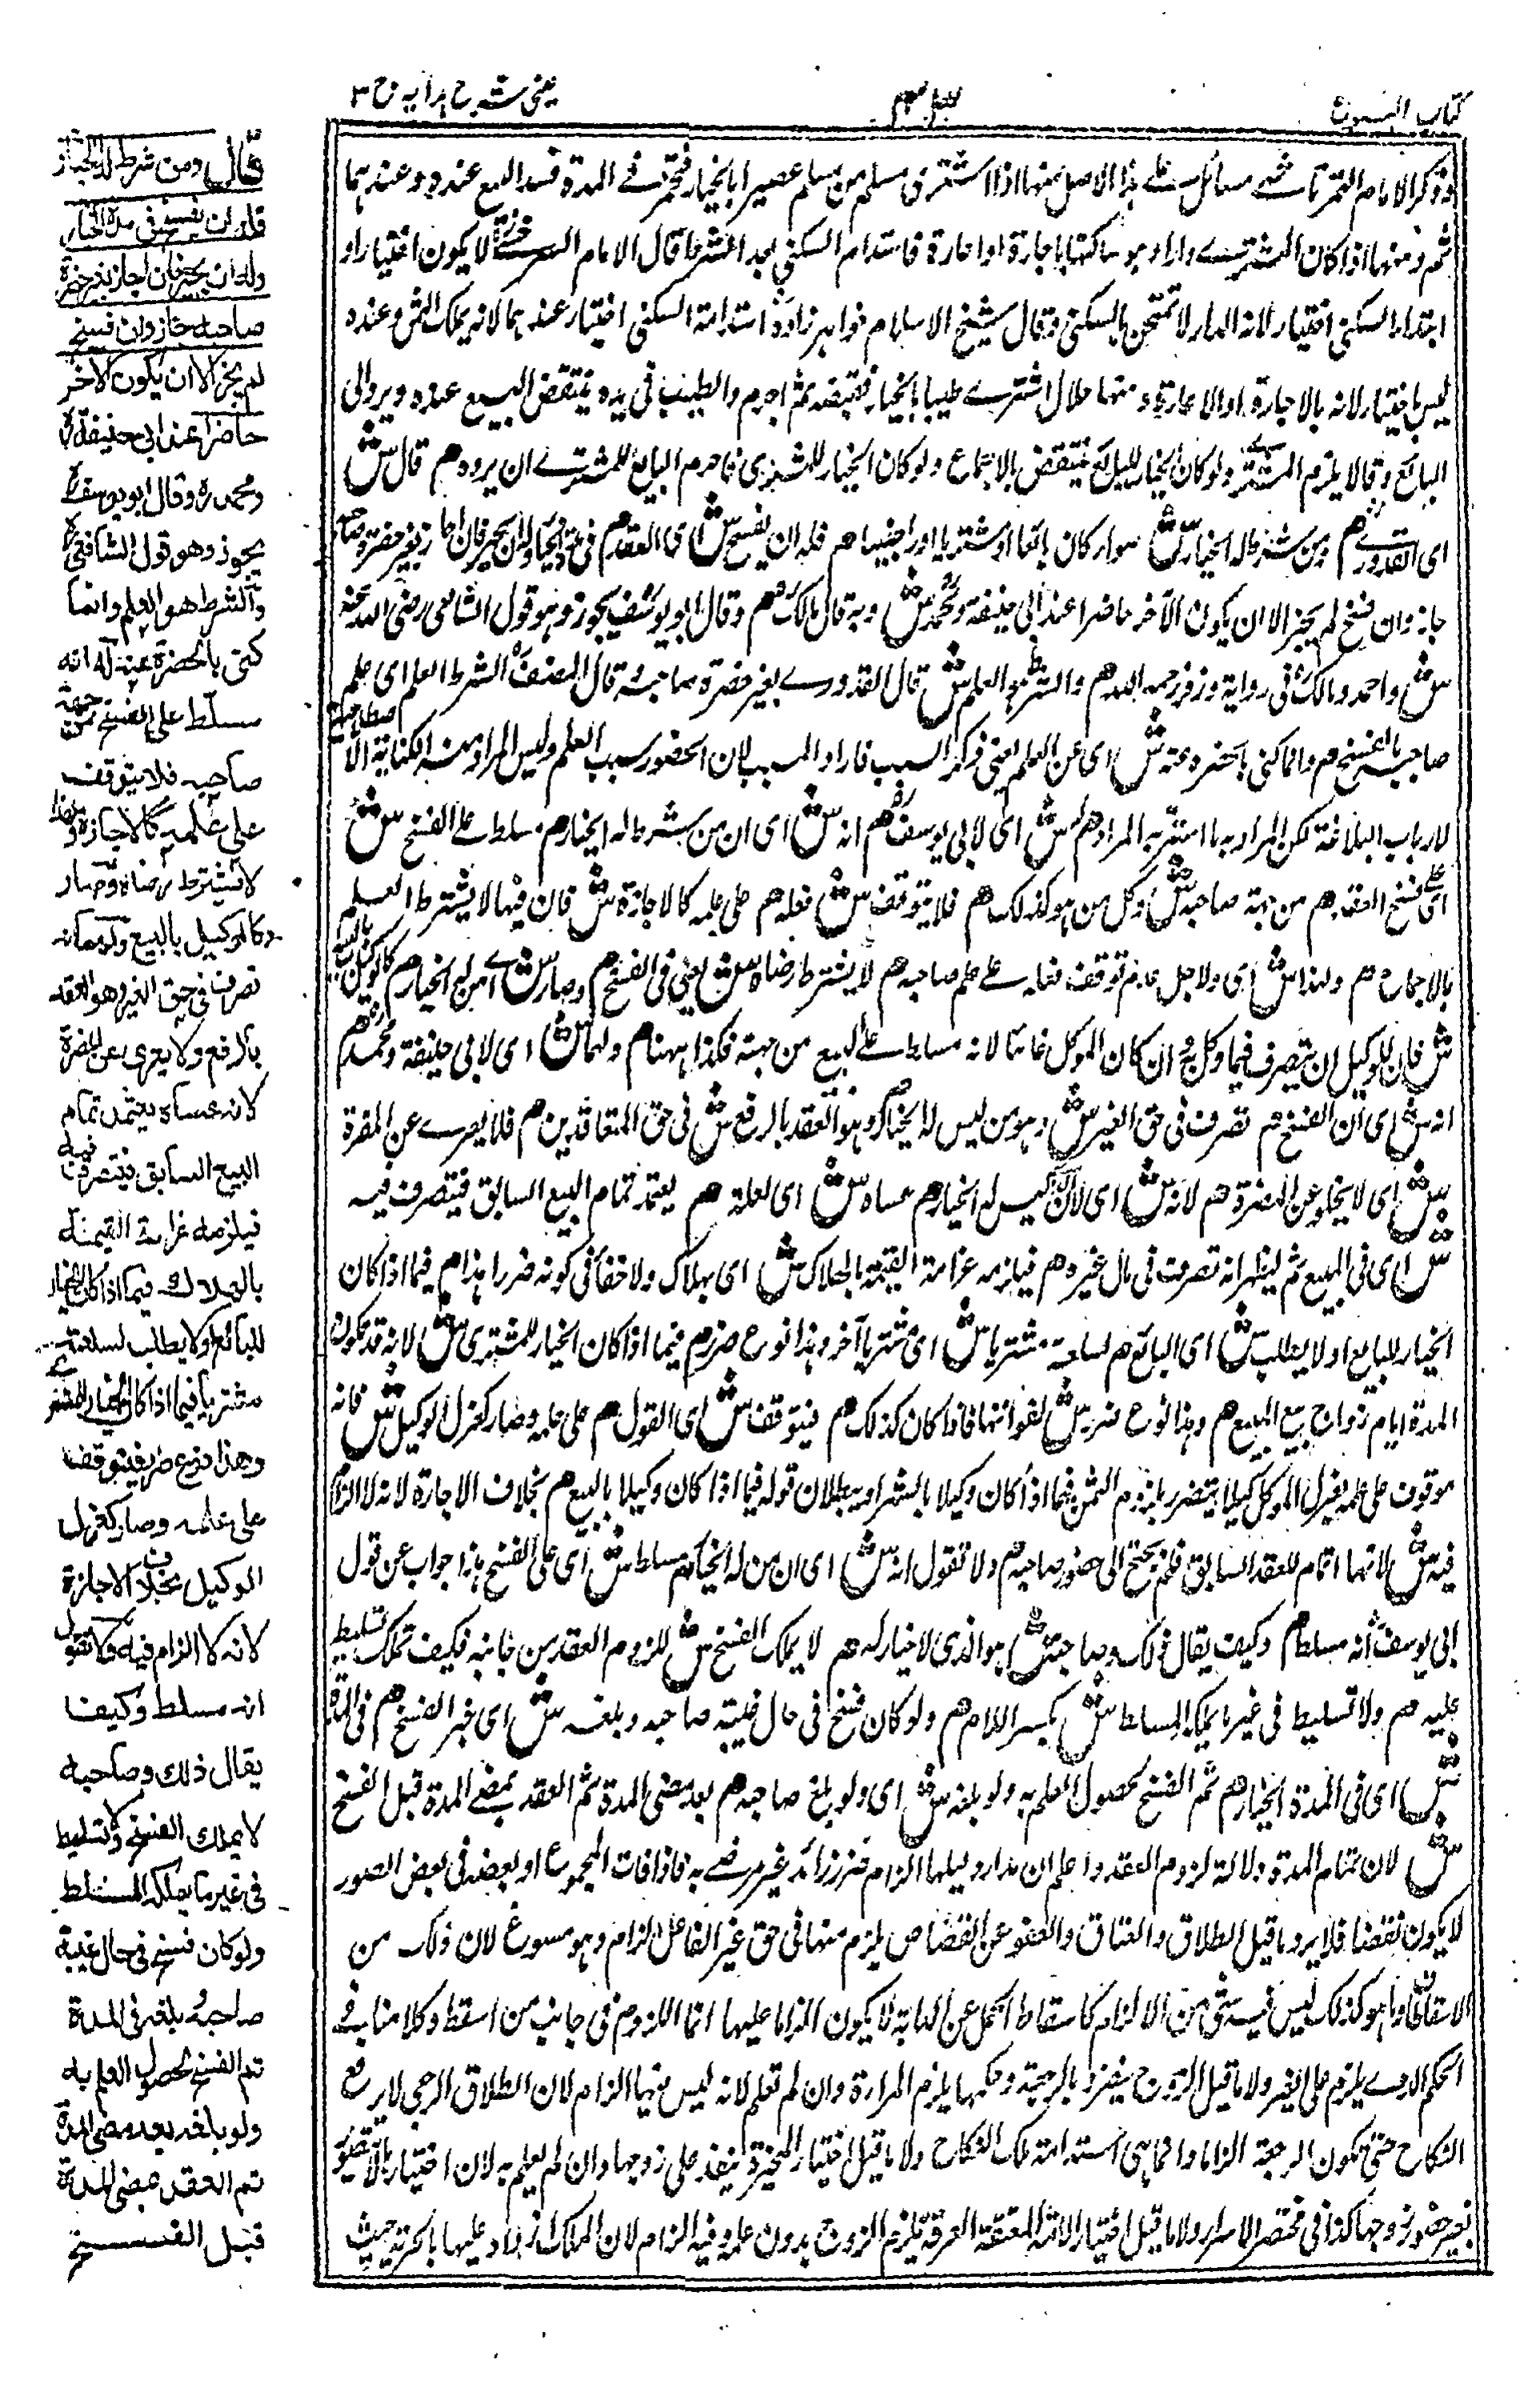 كتاب البيوع
عينى شرح هدايه ج ٣
وذكر الامام التمرتاشي مسائل على هذا الاصل منها اذا اشترى مسلم من مسلم عصيرا بالخيار فتخمر في المدة فسد البيع عنده وعندهما
ثم ومنها اذا كان المشترى دارا وهو ساكنها باجارة او اعارة فاستدام السكنى بعد الشراء قال الامام السرخسي لا يكون اختيارا و
ابتداء السكنى اختيار لانه الدار لا تمتحن بالسكنى وقال شيخ الاسلام خواهر زاده استدامة السكنى اختيار عندهما لانه يملك الثمن وعنده
ليس باختيار لانه بالاجارة او الاعارة ومنها حلال اشترى ظبيا بالخيار فقبضه ثم احرم والظبي في يده ينتقض البيع عنده ويرد الى
البائع وقالا يلزم المشترى ولو كان الخيار للبائع ينتقض بالاجماع ولو كان الخيار للمشترى فاحرم البائع للمشترى ان يرده م قال ش
اى القدورى م ومن شرط له الخيار ش سواء كان بائعا او مشتريا او اجنبيا م فله ان يفسخ ش اى العقد م فى مدة الخيار وله ان يجيز فان اجاز بغير حضرة صاحبه
جاز وان فسخ لم يجز الا ان يكون الآخر حاضرا عند ابى حنيفة ومحمد ش وبه قال مالك م وقال ابو يوسف يجوز وهو قول الشافعى رضى الله عنه
ش واحمد ومالك فى رواية وزفر رحمه الله م والشرط هو العلم ش قال القدورى بغير حضرة صاحبه قال المصنف الشرط العلم اى علم
صاحبه بالفسخ م وانما كنى بالحضرة عنه ش اى عن العلم يعنى ذكر السبب واراد المسبب لان الحضور سبب العلم وليس المراد منه الكناية الا
لارباب البلاغة لكن المراد به ما استتر به المراد م له ش اى لابى يوسف م انه ش اى ان من يشرط له الخيار م مسلط على الفسخ ش
اى على فسخ العقد م من جهة صاحبه ش وكل من هو كذلك م فلا يتوقف ش فعله م على علمه كالاجازة ش فان فيها لا يشترط العلم
بالاجماع م ولهذا ش اى ولاجل عدم توقف فعله على علم صاحبه م لا يشترط رضاه ش يعنى فى الفسخ م وصار ش اى من له الخيار م كالوكيل بالبيع
ش فان للوكيل ان يتصرف فيما وكل به وان كان الموكل غائبا لانه مسلط على البيع من جهته فكذا ههنا م ولهما ش اى لابى حنيفة ومحمد م
انه ش اى ان الفسخ م تصرف فى حق الغير ش وهو من ليس له الخيار م وهو العقد بالرفع ش فى حق المتعاقدين م فلا يعرى عن المضرة
ش اى لا يخلو عن المضرة م لانه ش اى لان من ليس له الخيار م عساه ش اى لعله م يعتمد تمام البيع السابق فيتصرف فيه
ش اى فى المبيع ثم يظهر انه تصرف فى مال غيره م فيلزمه غرامة القيمة بالهلاك ش اى بهلاك ولا خفاء فى كونه ضررا هذا م فيما اذا كان
الخيار للبائع او لا يطلب ش اى البائع م لسلعته مشتريا ش اى مشتريا آخر وهذا نوع ضرر م فيما اذا كان الخيار للمشترى ش لانه قد يكون
المدة ايام رواج بيع المبيع م وهذا نوع ضرر ش لفواتها فاذا كان كذلك م فيتوقف ش اى القول م على علمه وصار كعزل الوكيل ش فانه
موقوف على علمه بعزل الموكل كيلا يتضرر بلزوم الثمن فيما اذا كان وكيلا بالشراء وببطلان قوله فيما اذا كان وكيلا بالبيع م بخلاف الاجازة لانه لا الزام
فيه ش لانها اتمام للعقد السابق فلم يحتج الى حضور صاحبه م ولا نقول انه ش اى ان من له الخيار م مسلط ش اى على الفسخ هذا جواب عن قول
ابى يوسف انه مسلط م وكيف يقال ذلك وصاحبه ش هو الذى لا خيار له م لا يملك الفسخ ش للزوم العقد من جانبه فكيف تملك تسليط
عليه م ولا تسليط فى غير ما يملكه المسلط ش بكسر اللام م ولو كان فسخ فى حال غيبة صاحبه وبلغه ش اى خبر الفسخ م فى المدة
ش اى فى المدة الخيار م تم الفسخ لحصول العلم به ولو بلغه ش اى ولو بلغ صاحبه م بعد مضى المدة تم العقد بمضى المدة قبل الفسخ
ش لان تمام المدة دلالة لزوم العقد واعلم ان مدار دليلهما الزام ضرر زائد غير مرضى به فاذا فات المجموع او بعضه فى بعض الصور
لا يكون نقضا فلا يرد ما قيل الطلاق والعتاق والعفو عن القصاص يلزم منها فى حق غير الفاعل الزام وهو مسوغ لان ذلك من
الاسقاطات وما هو كذلك ليس فيه شىء من الالزام كاسقاط الحمل عن الدابة لا يكون الزاما عليها انما اللزوم فى جانب من اسقط وكلامنا فى
الحكم الذى يلزم على الغير ولا ما قيل الزوج ينفرد بالرجعة وحكمها يلزم المراة وان لم تعلم لانه ليس فيها الزام لان الطلاق الرجعى لا يرفع
النكاح حتى تكون الرجعة الزاما وانما هى استدامة ملك النكاح ولا ما قيل اختيار المخيرة ينفذ على زوجها وان لم يعلم به لان اختيارها
بغير حضور زوجها كذا فى مختصر الاسرار ولا ما قيل اختيار الامة المعتقة الفرقة يلزم الزوج بدون علمه وفيه الزام لان الملك ازداد عليها بالحرية حيث
قال ومن شرط له الخيار
فله ان يفسخ فى مدة الخيار
وله ان يجيز فان اجاز بغير حضرة
صاحبه جاز وان فسخ
لم يجز الا ان يكون الآخر
حاضرا عند ابى حنيفة
ومحمد وقال ابو يوسف
يجوز وهو قول الشافعى
والشرط هو العلم وانما
كنى بالحضرة عنه له انه
مسلط على الفسخ من جهة
صاحبه فلا يتوقف
على علمه كالاجازة ولهذا
لا يشترط رضاه وصار
كالوكيل بالبيع ولهما انه
تصرف فى حق الغير وهو العقد
بالرفع ولا يعرى عن المضرة
لانه عساه يعتمد تمام
البيع السابق فيتصرف فيه
فيلزمه غرامة القيمة
بالهلاك فيما اذا كان الخيار
للبائع او لا يطلب لسلعته
مشتريا فيما اذا كان الخيار للمشترى
وهذا نوع ضرر فيتوقف
على علمه وصار كعزل
الوكيل بخلاف الاجازة
لانه لا الزام فيه ولا نقول
انه مسلط وكيف
يقال ذلك وصاحبه
لا يملك الفسخ ولا تسليط
فى غير ما يملكه المسلط
ولو كان فسخ فى حال غيبة
صاحبه وبلغه فى المدة
تم الفسخ لحصول العلم به
ولو بلغه بعد مضى المدة
تم العقد بمضى المدة
قبل الفسخ